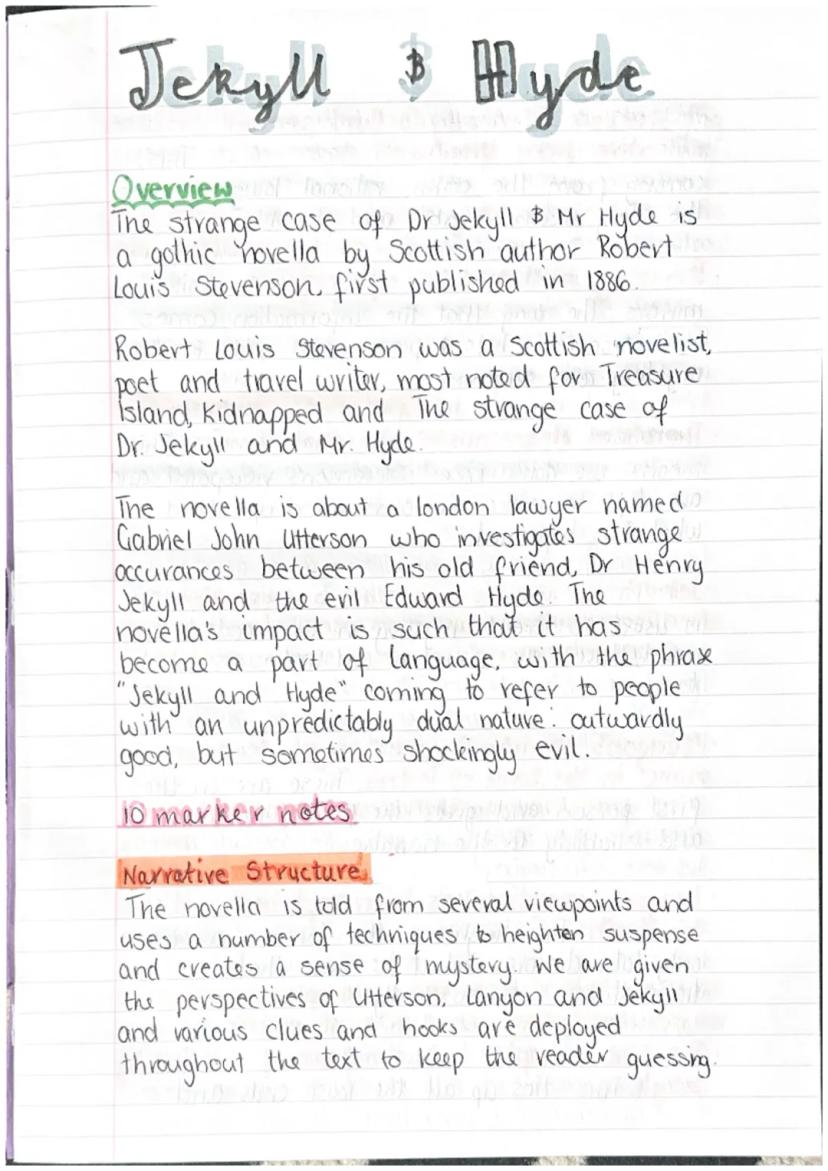 Jekyll & Hyde
Overview
The strange case of Dr Jekyll & Mr Hyde is
a gothic novella by Scottish author Robert
Louis Stevenson first published in 1886.
Robert Louis Stevenson was a Scottish novelist,
poet and travel writer, most noted for Treasure
Island, Kidnapped and The strange case of
Dr. Jekyll and Mr. Hyde.
The novella is about a london lawyer named
Gabriel John Utterson who investigates strange
occurances between his old friend, Dr Henry
Jekyll and the evil Edward Hyde. The
novella's impact is such that it has
become a part of language, with the phrase
"Jekyll and Hyde" coming to refer to people
with an unpredictably dual nature: outwardly
good, but sometimes shockingly evil.
10 marker notes
Narrative Structure
The novella is told from several viewpoints and
uses a number of techniques to heighten suspense
and creates a sense of mystery. We are given
the perspectives of Utterson, Lanyon and Jekyll
and various clues and hooks are deployed
throughout the text to keep the reader guessing.